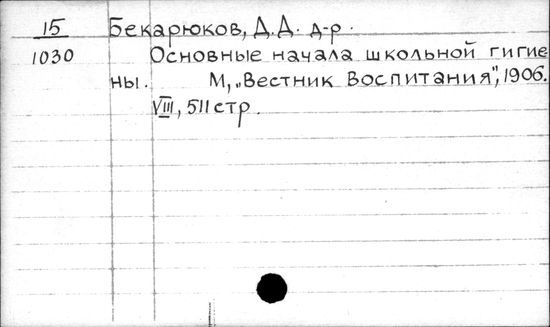 15 Бекарюков, Д.Д. д-р.
1030 Основные начала школьной гигие
ны. М, „Вестник Воспитания", 1906.
VIII, 511 стр.